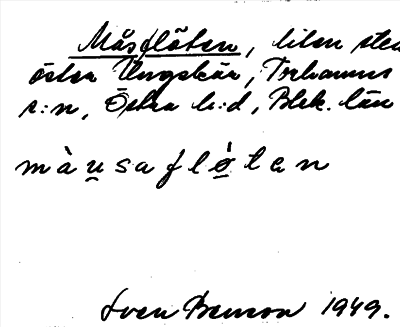 Måsflöten, liten sten
öster Ungskär, Torhamns
s:n, Östra h:d, Blek. län
màusaflò̱ten
Sven Benson 1949.